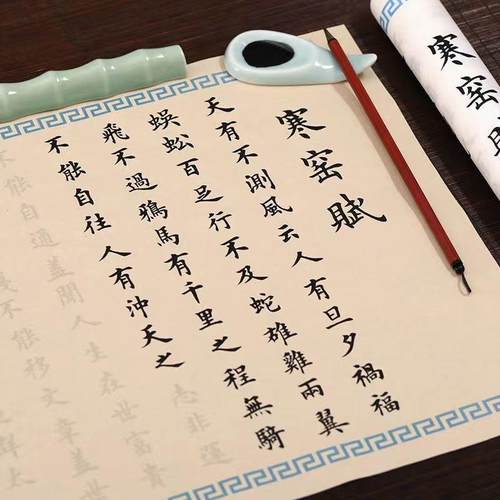 寒窑賦
天有不測風云人有旦夕禍福
蜈蚣百足行不及蛇雄雞兩翼
飛不過鴉馬有千里之程無騎
不能自往人有沖天之志非運
不能自通蓋聞人生在世富貴
不能移文章蓋
寒窑